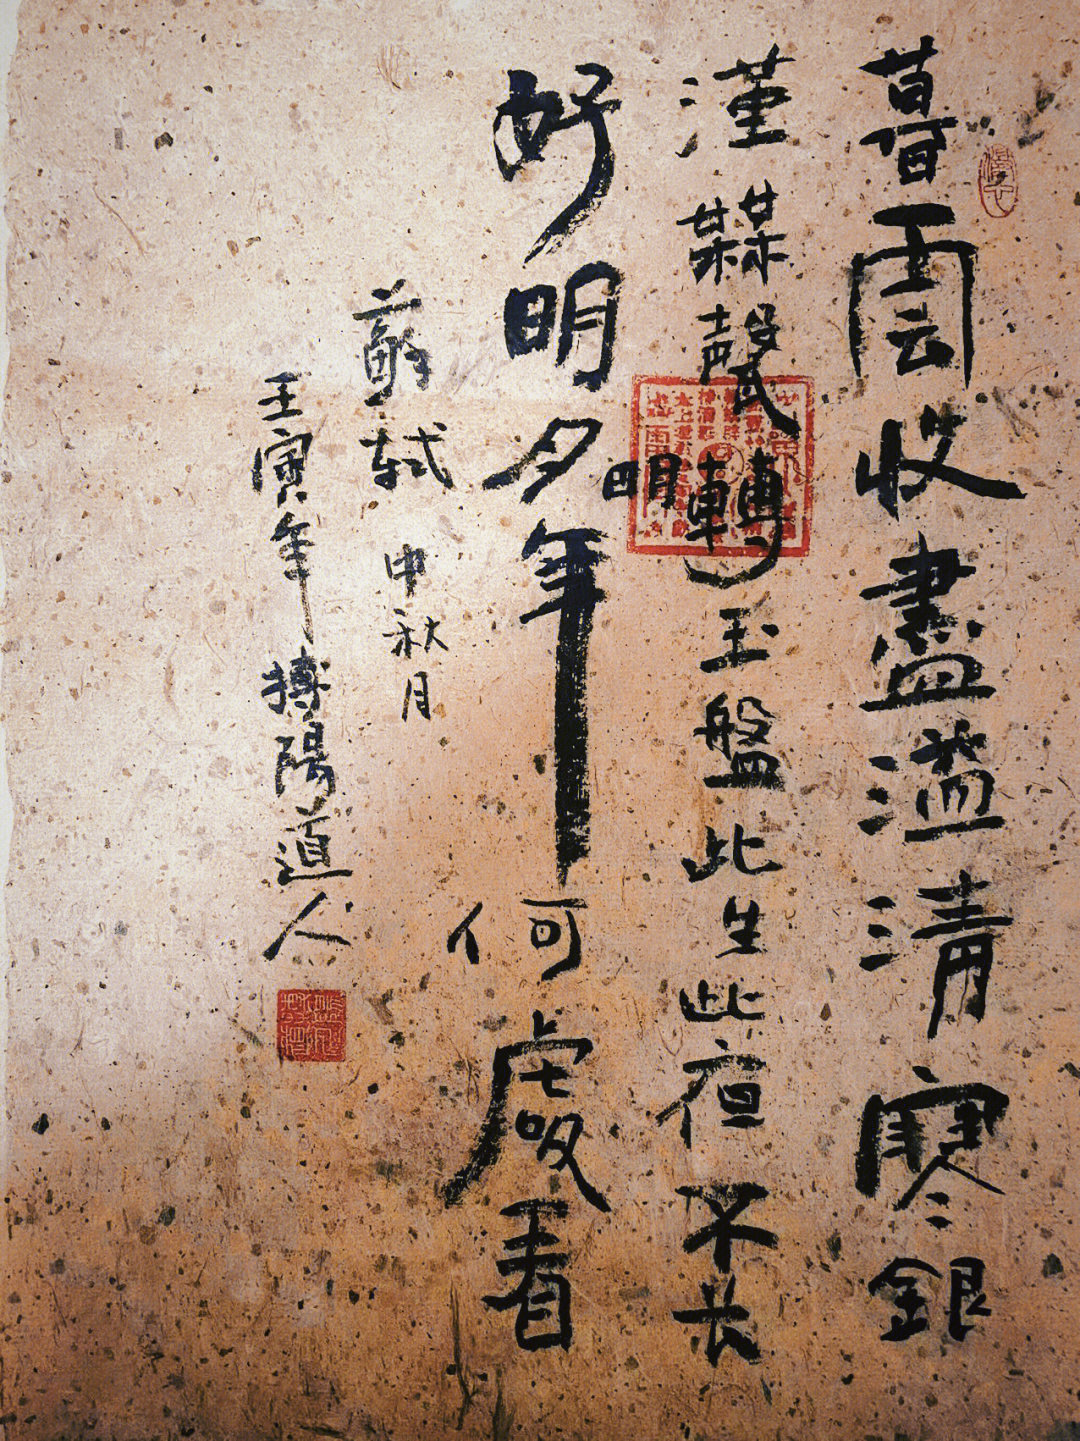 暮雲收盡溢清寒銀
漢無聲轉玉盤此生此夜不长
好明月明年何處看
蘇軾 中秋月
壬寅年搏陽道人